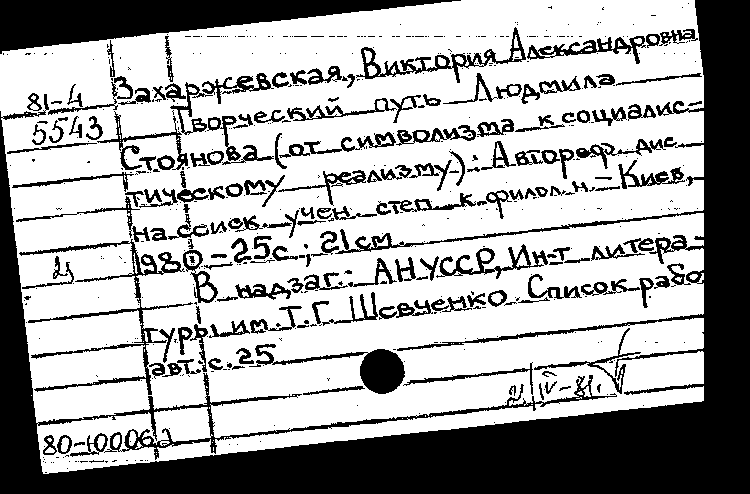 81-4 Захаржевская, Виктория Александровна
5543 Творческий путь Людмила
Стоянова (от символизма к социалис-
тическому реализму): Автореф. дис.
на соиск. учен. степ. к. филол. н. - Киев,
1980 - 25с.; 21см.
В надзаг.: АНУССР, Ин-т литера-
туры им. Т.Г. Шевченко. Список работ
авт.: с. 25
IV-81.
80-100062